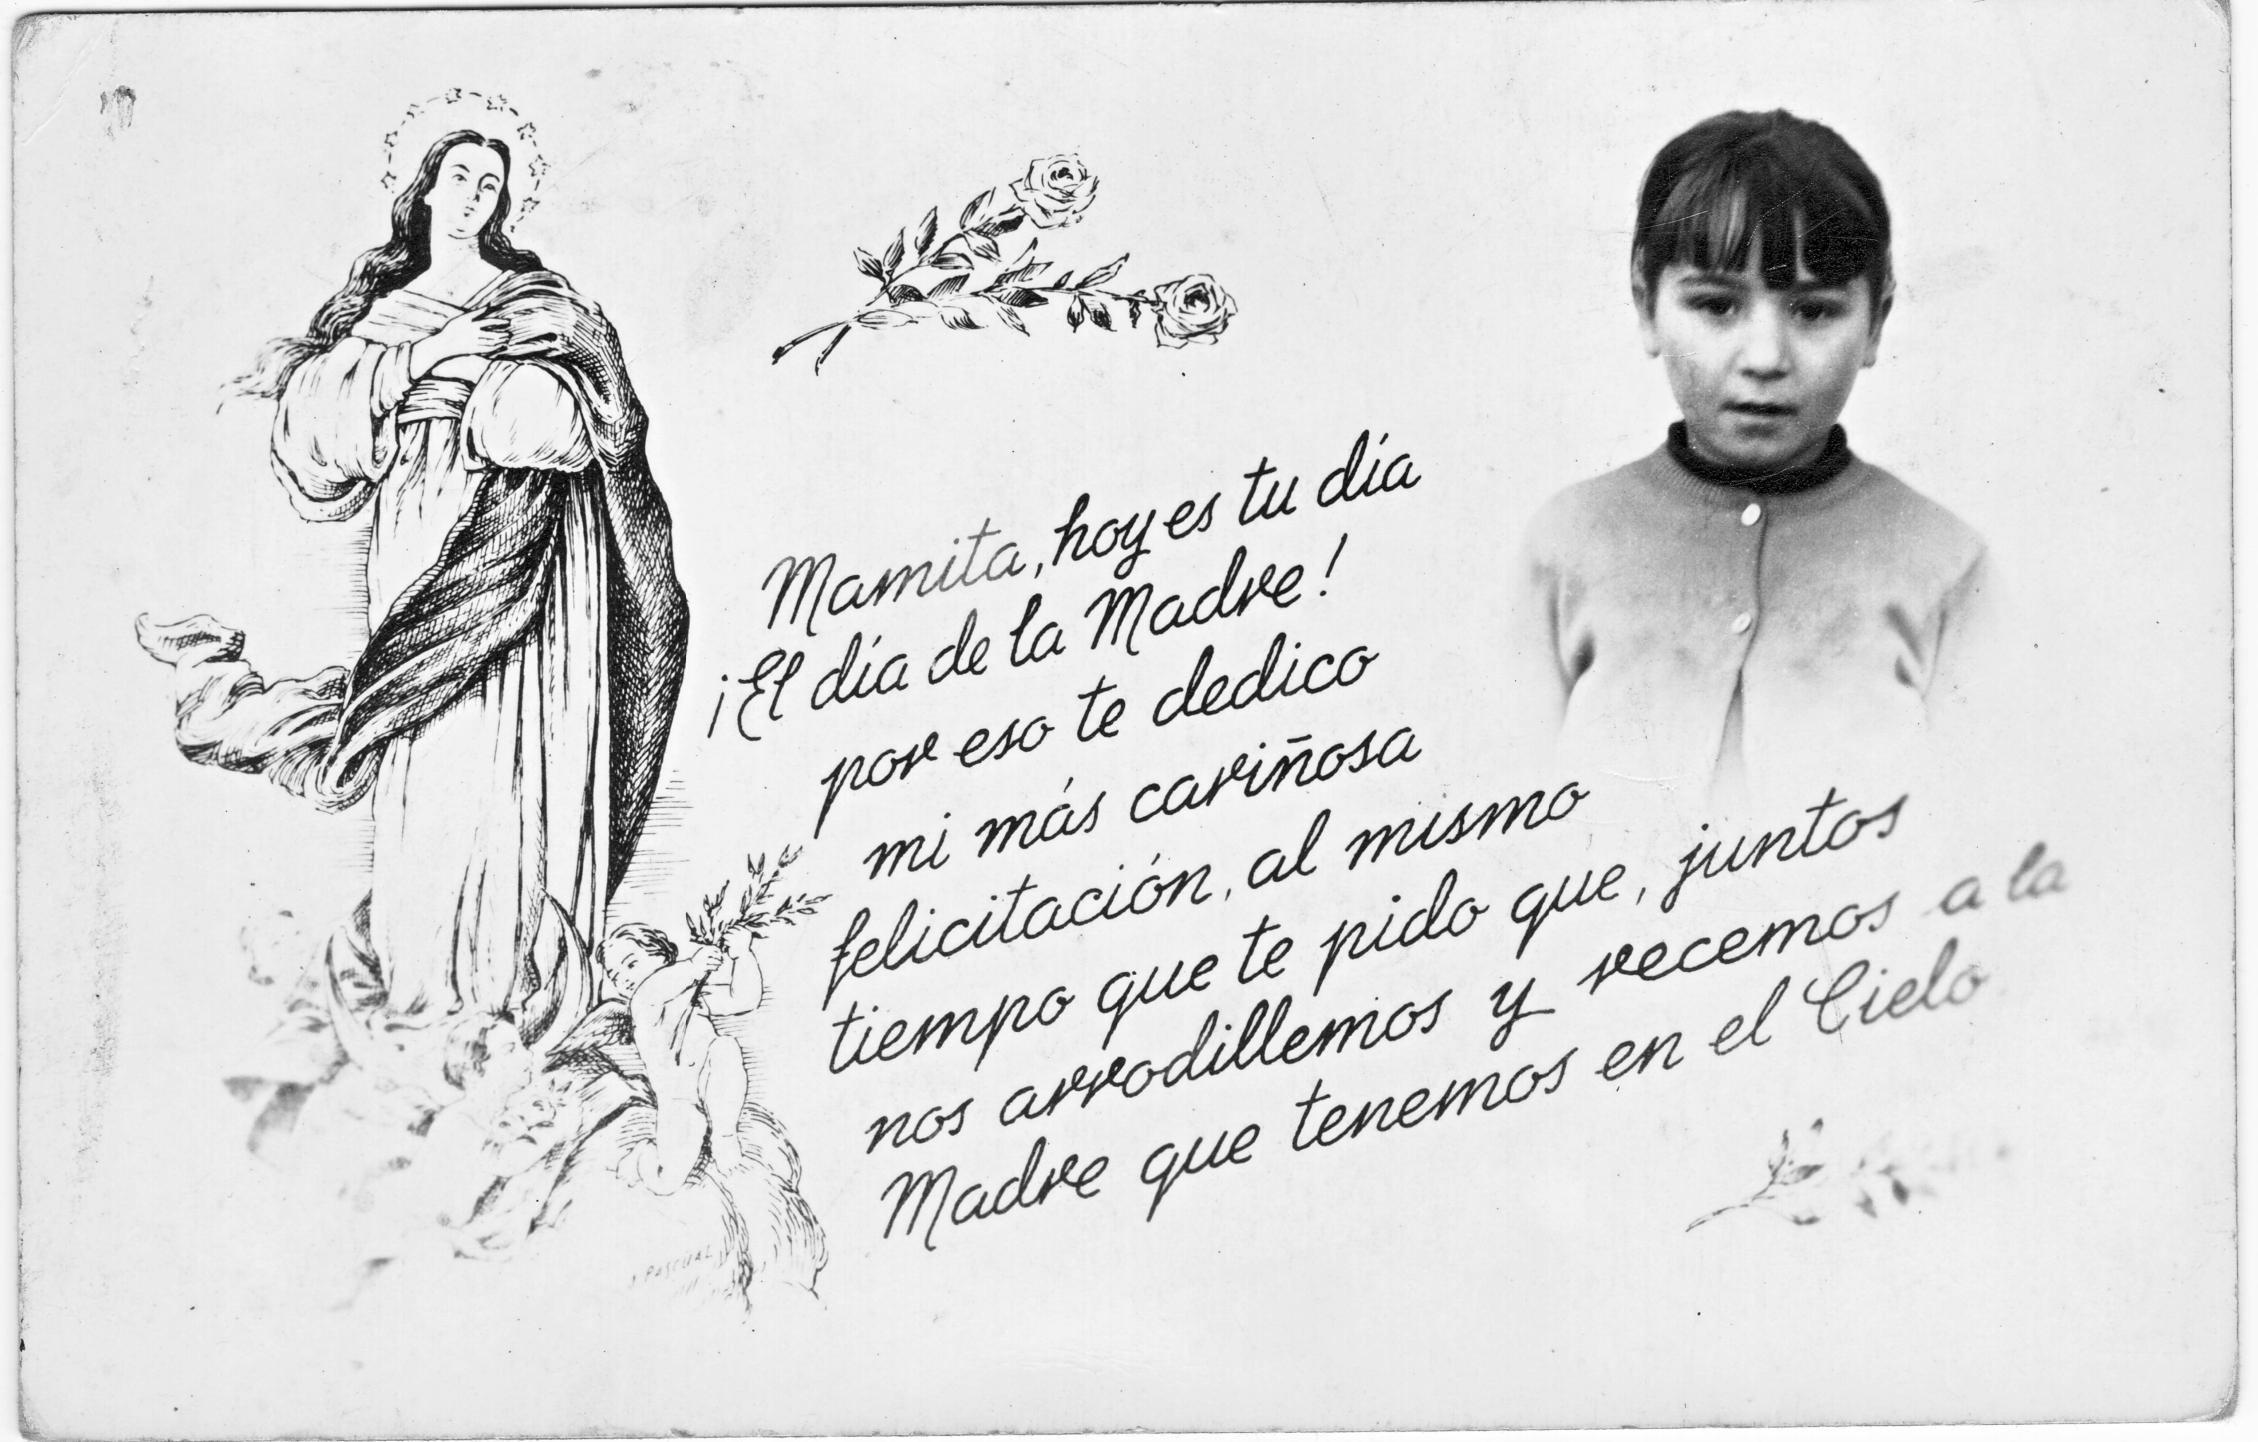 Mamita, hoy es tu día
¡El día de la Madre!
por eso te dedico
mi más cariñosa
felicitación, al mismo
tiempo que te pido que, juntos
nos arrodillemos y recemos a la
Madre que tenemos en el Cielo
PASCUAL